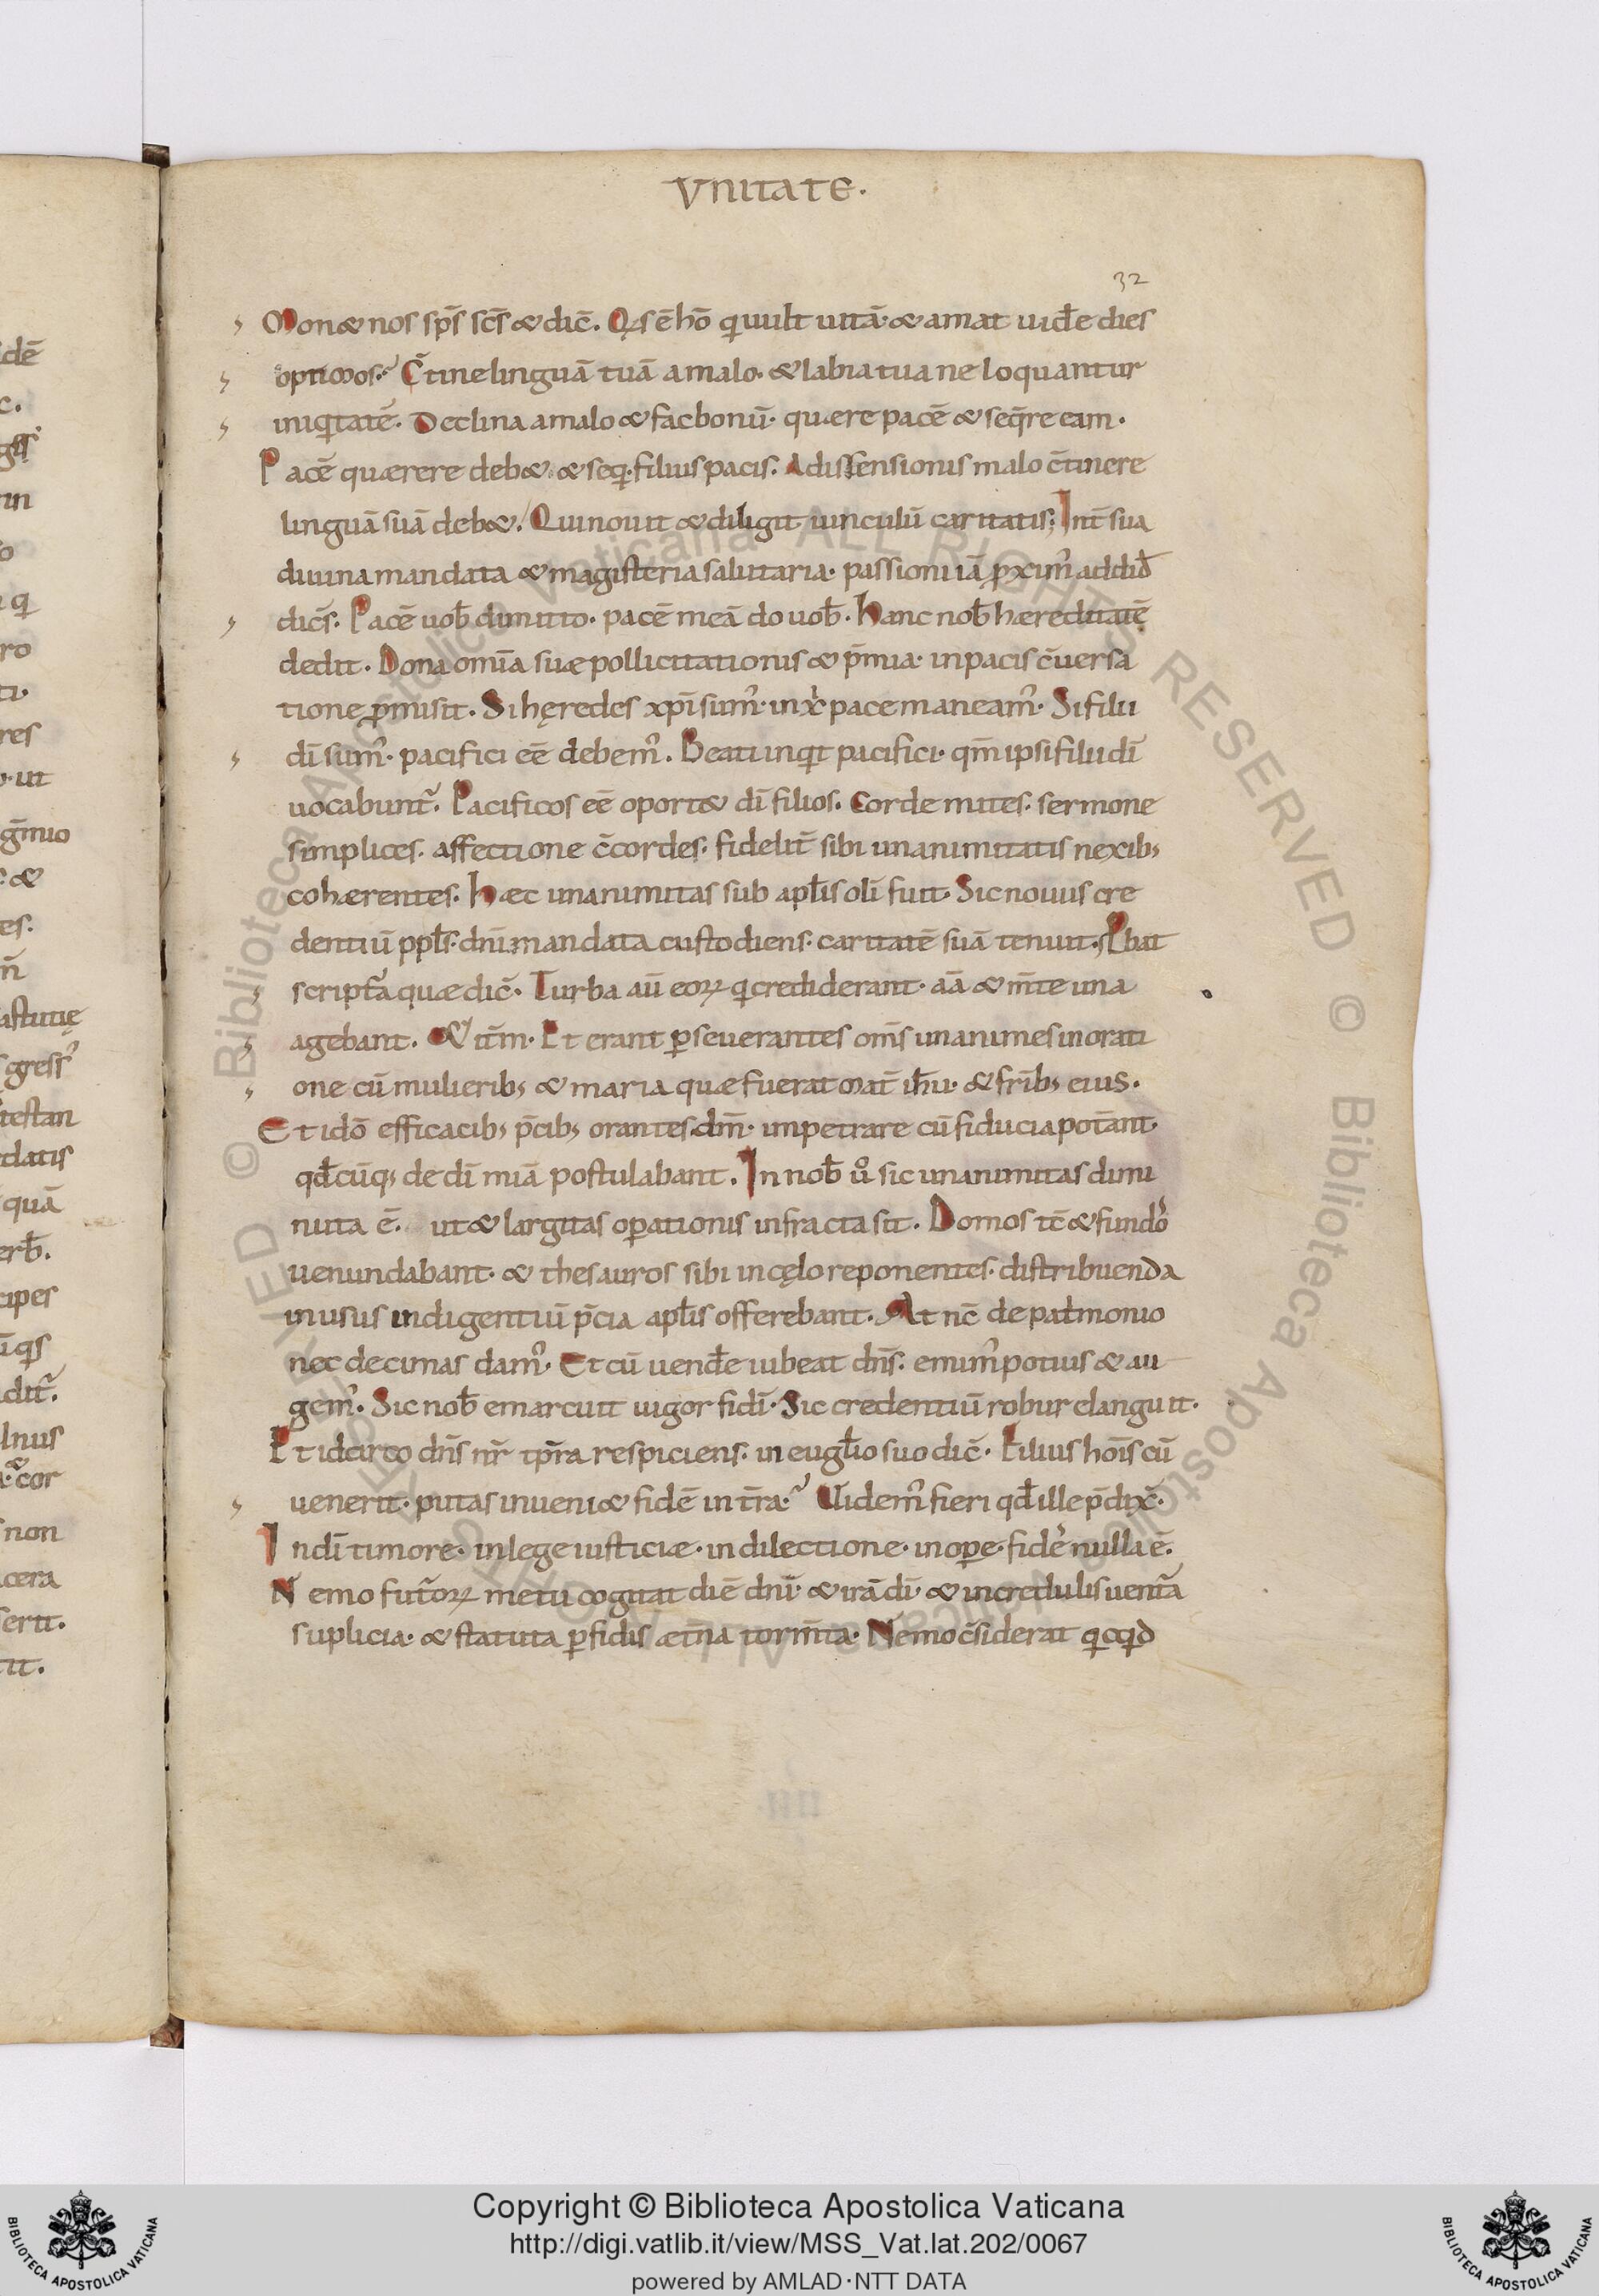 VNITATE.
32
Monæ nos sp̄s sc̄s & dic̄. Qis ē hō qi uult uitā· & amat uid̄e dies
optimos? C̄tine linguā tuā a malo· & labia tua ne loquantur
iniqitatē. Declina a malo & fac bonū· quære pacē & seq̄re eam.
Pacē quærere deb& & seqi filius pacis. A dissensionis malo c̄tinere
linguā suā deb&. Qui nouit & diligit uinculū caritatis; Int̄ sua
diuina mandata & magisteria salutaria· passioni iā ꝓximꝰ addid̄
dic̄s. Pacē uob̄ dimitto· pacē meā do uob̄. Hanc nob̄ hæreditatē
dedit. Dona om̄ia suæ pollicitationis & p̄mia· in pacis c̄uersa
tione ꝓmisit. Si hęredes xp̄i sumꝰ· in xp̄i pace maneamꝰ. Si filii
dī sumꝰ· pacifici eē debemꝰ. Beati inqit pacifici· qm̄ ipsi filii dī
uocabunt᷑. Pacificos eē oport& dī filios. Corde mites· sermone
simplices· affectione c̄cordes· fidelit̄ sibi unanimitatis nexibꝫ
cohærentes. Hæc unanimitas sub apl̄is olī fuit. Sic nouus cre
dentiū ppl̄s· dn̄i mandata custodiens· caritatē suā tenuit. Ꝓbat
script̄a quæ dic̄. Turba aū eoꝝ qi crediderant· aā & m̄te una
agebant. & it̄m. Et erant ꝑseuerantes om̄s unanimes in orati
one cū mulieribꝫ & maria quæ fuerat mat̄ ih̄u· & fr̄ibꝫ eius.
Et idō efficacibꝫ p̄cibꝫ orantes dm̄· impetrare cū fiducia pot̄ant·
qd̄cūqꝫ de dī miā postulabant. In nob̄ uͦ sic unanimitas dimi
nuta ē. ut & largitas oꝑationis infracta sit. Domos tc̄ & fundos
uenundabant· & thesauros sibi in cęlo reponentes· distribuenda
in usus indigentiū p̄cia apl̄is offerebant. At nc̄ de pat̄monio
nec decimas damꝰ. Et cū uend̄e iubeat dn̄s· emimꝰ potius & au
gemꝰ. Sic nob̄ emarcuit uigor fidī. Sic credentiū robur elanguit.
Et idcirco dn̄s nr̄ tp̄ra respiciens· in eugl̄io suo dic̄. Filius hōis cū
uenerit· putas inueni& fidē in t̄ra? Uidemꝰ fieri qd̄ ille p̄dix̄.
In dī timore· in lege iusticiæ· in dilectione· in oꝑe· fidei nulla ē.
Nemo fut̄oꝝ metu cogitat diē dn̄i· & irā dī· & incredulis uent̄a
suplicia· & statuta ꝑfidis æt̄na torm̄ta. Nemo c̄siderat qicqid
© Biblioteca Apostolica Vaticana ALL RIGHTS RESERVED
Copyright © Biblioteca Apostolica Vaticana
http://digi.vatlib.it/view/MSS_Vat.lat.202/0067
powered by AMLAD·NTT DATA
BIBLIOTECA APOSTOLICA VATICANA
BIBLIOTECA APOSTOLICA VATICANA